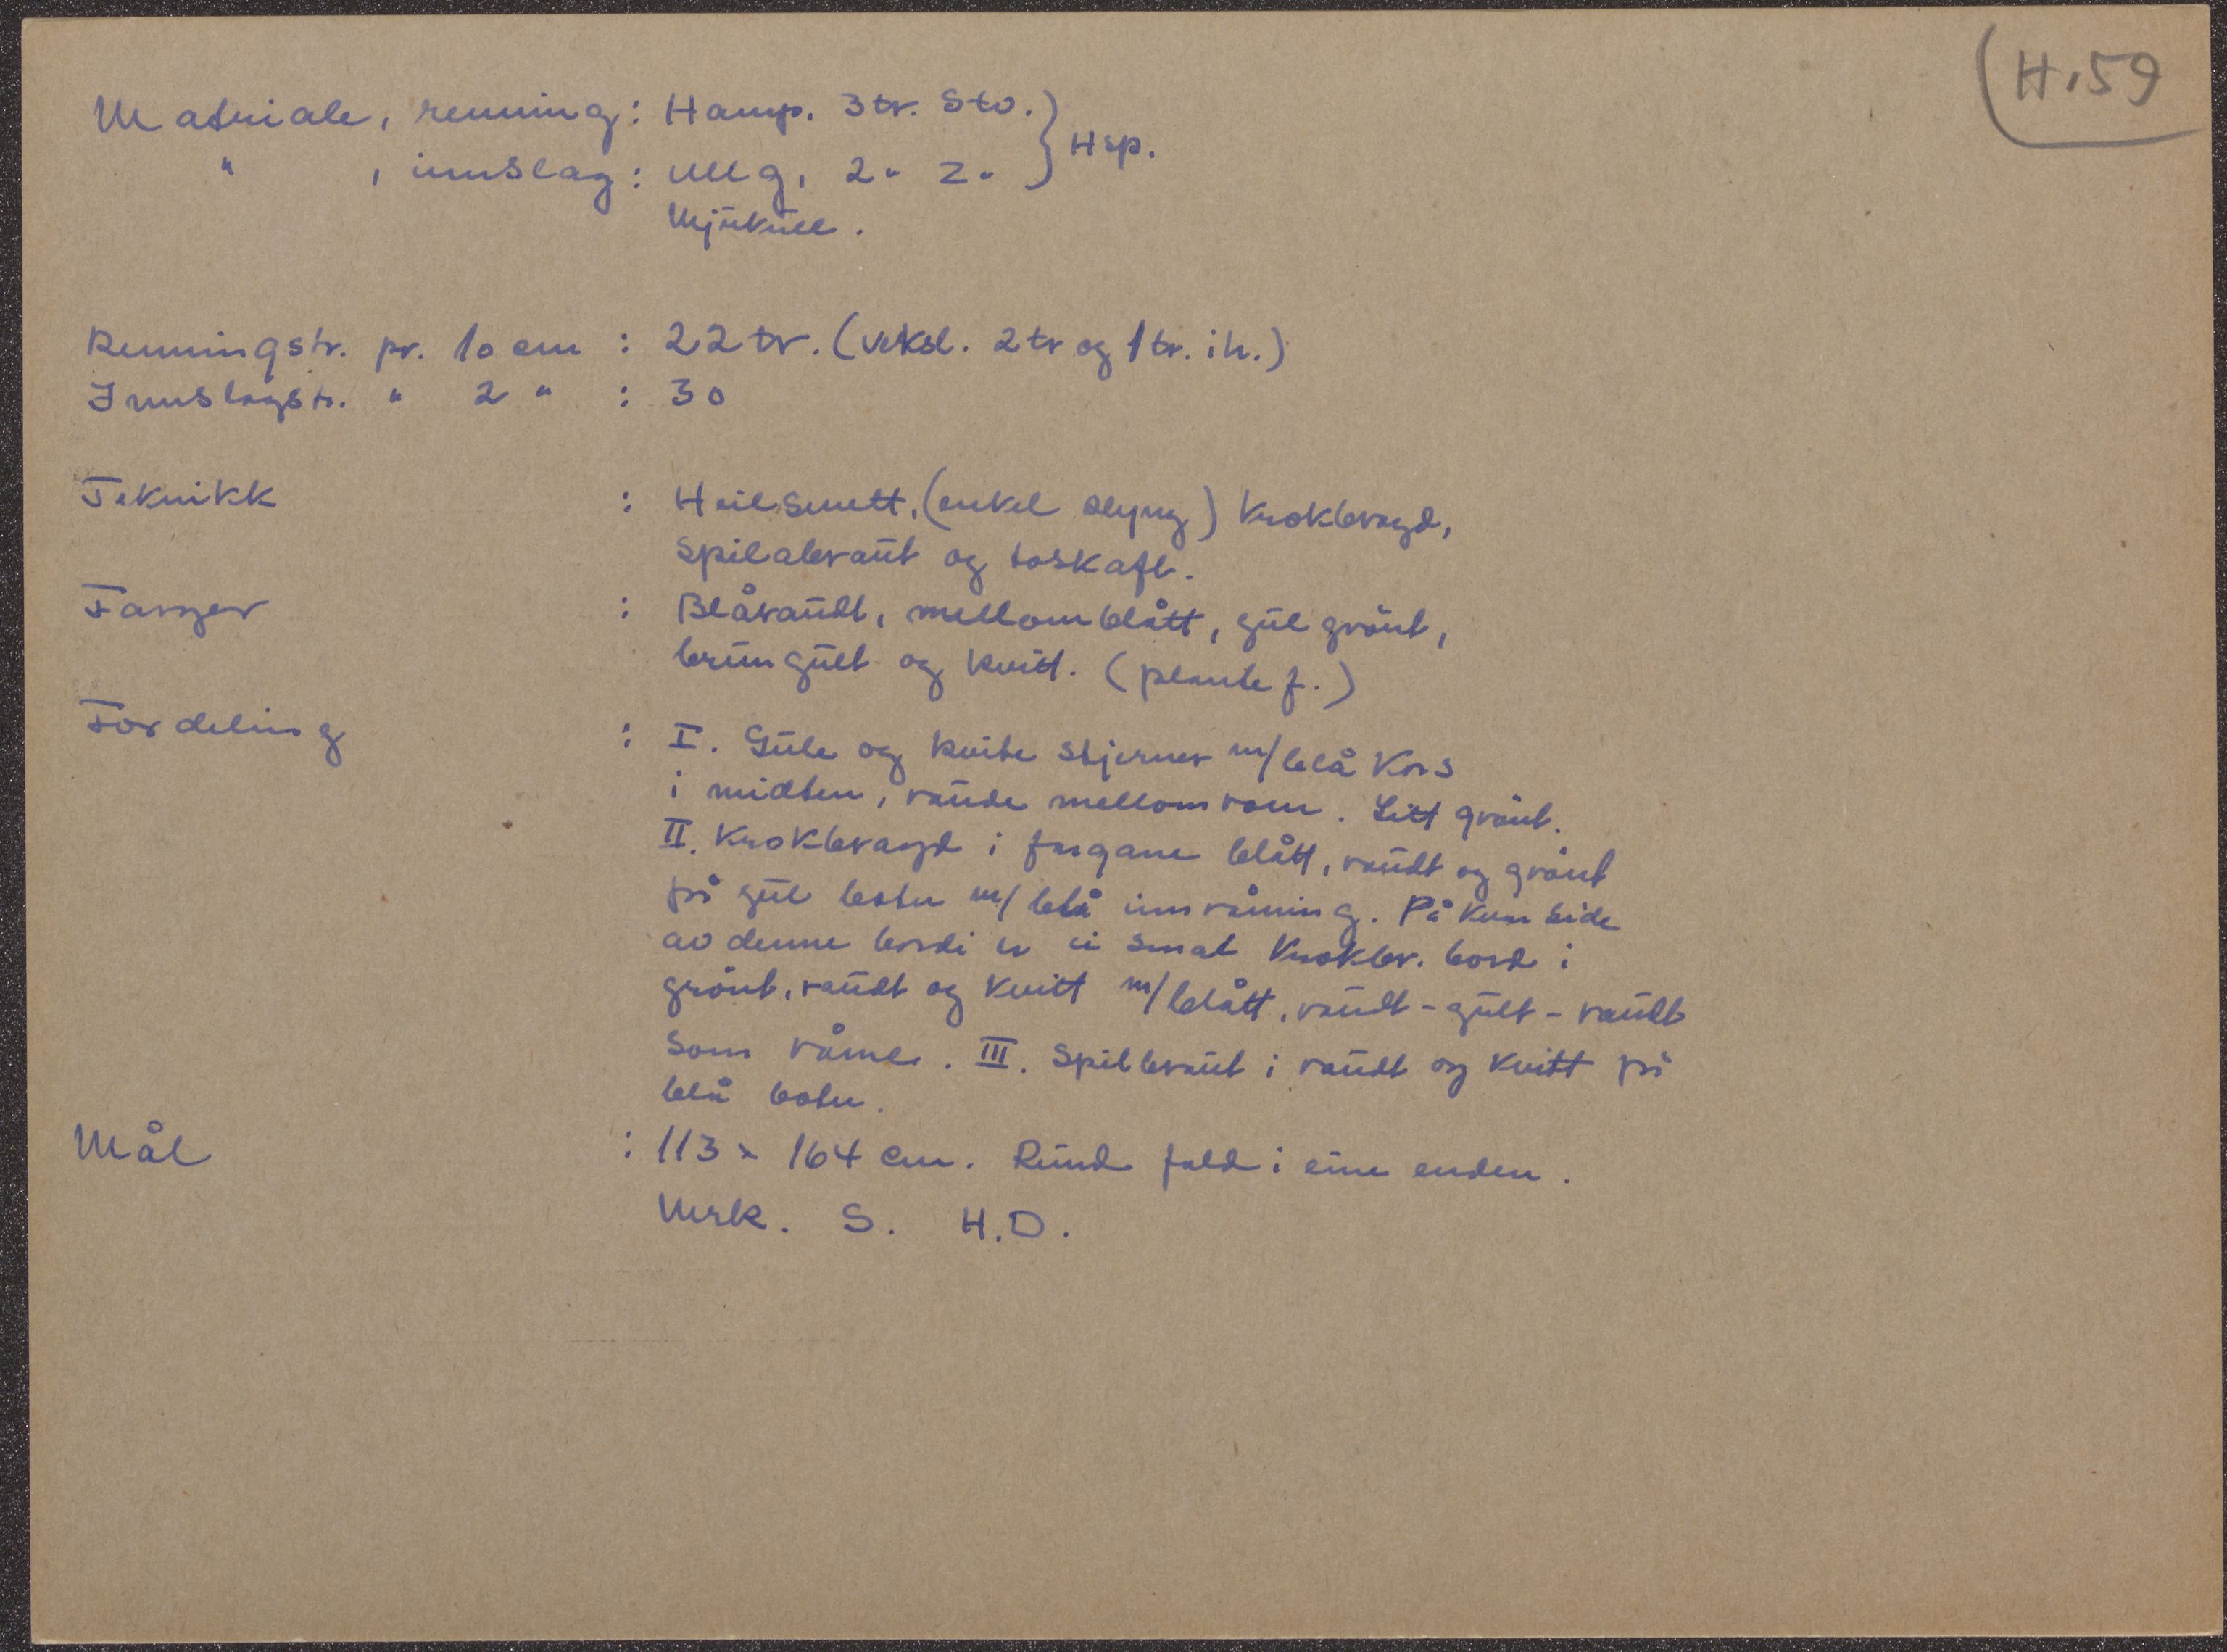 H.59
Materiale, renning: Hamp. 3 tr. Stv. } Hsp.
" , innslag: Ullg, 2 " Z "
Mjukull.
Renningstr. pr. 10 cm : 22 tr. (veksl. 2 tr og 1 tr. i h.)
Innslagstr. " 2 " : 30
Teknikk : Heilsmett, (enkel slyng) Krokbragd,
spilabraut og toskaft.
Farger : Blåraudt, mellomblått, gulgrönt,
brungult og kvitt. (plantef.)
Fordeling : I. Gule og kvite stjerner m/blå Kors
i midten, raude mellomrom. Litt grönt.
II. Krokbragd i fargane blått, raudt og grönt
på gul botn m/ blå innråming. På kvar side
av denne bordi er ei smal Krokbr. bord i
grönt, raudt og Kvitt m/blått, raudt - gult - raudt
som råme. III. Spilbraut i raudt og Kvitt på
blå botn.
Mål : 113 x 164 cm. Rund fald i eine enden.
Merk. S. H.D.